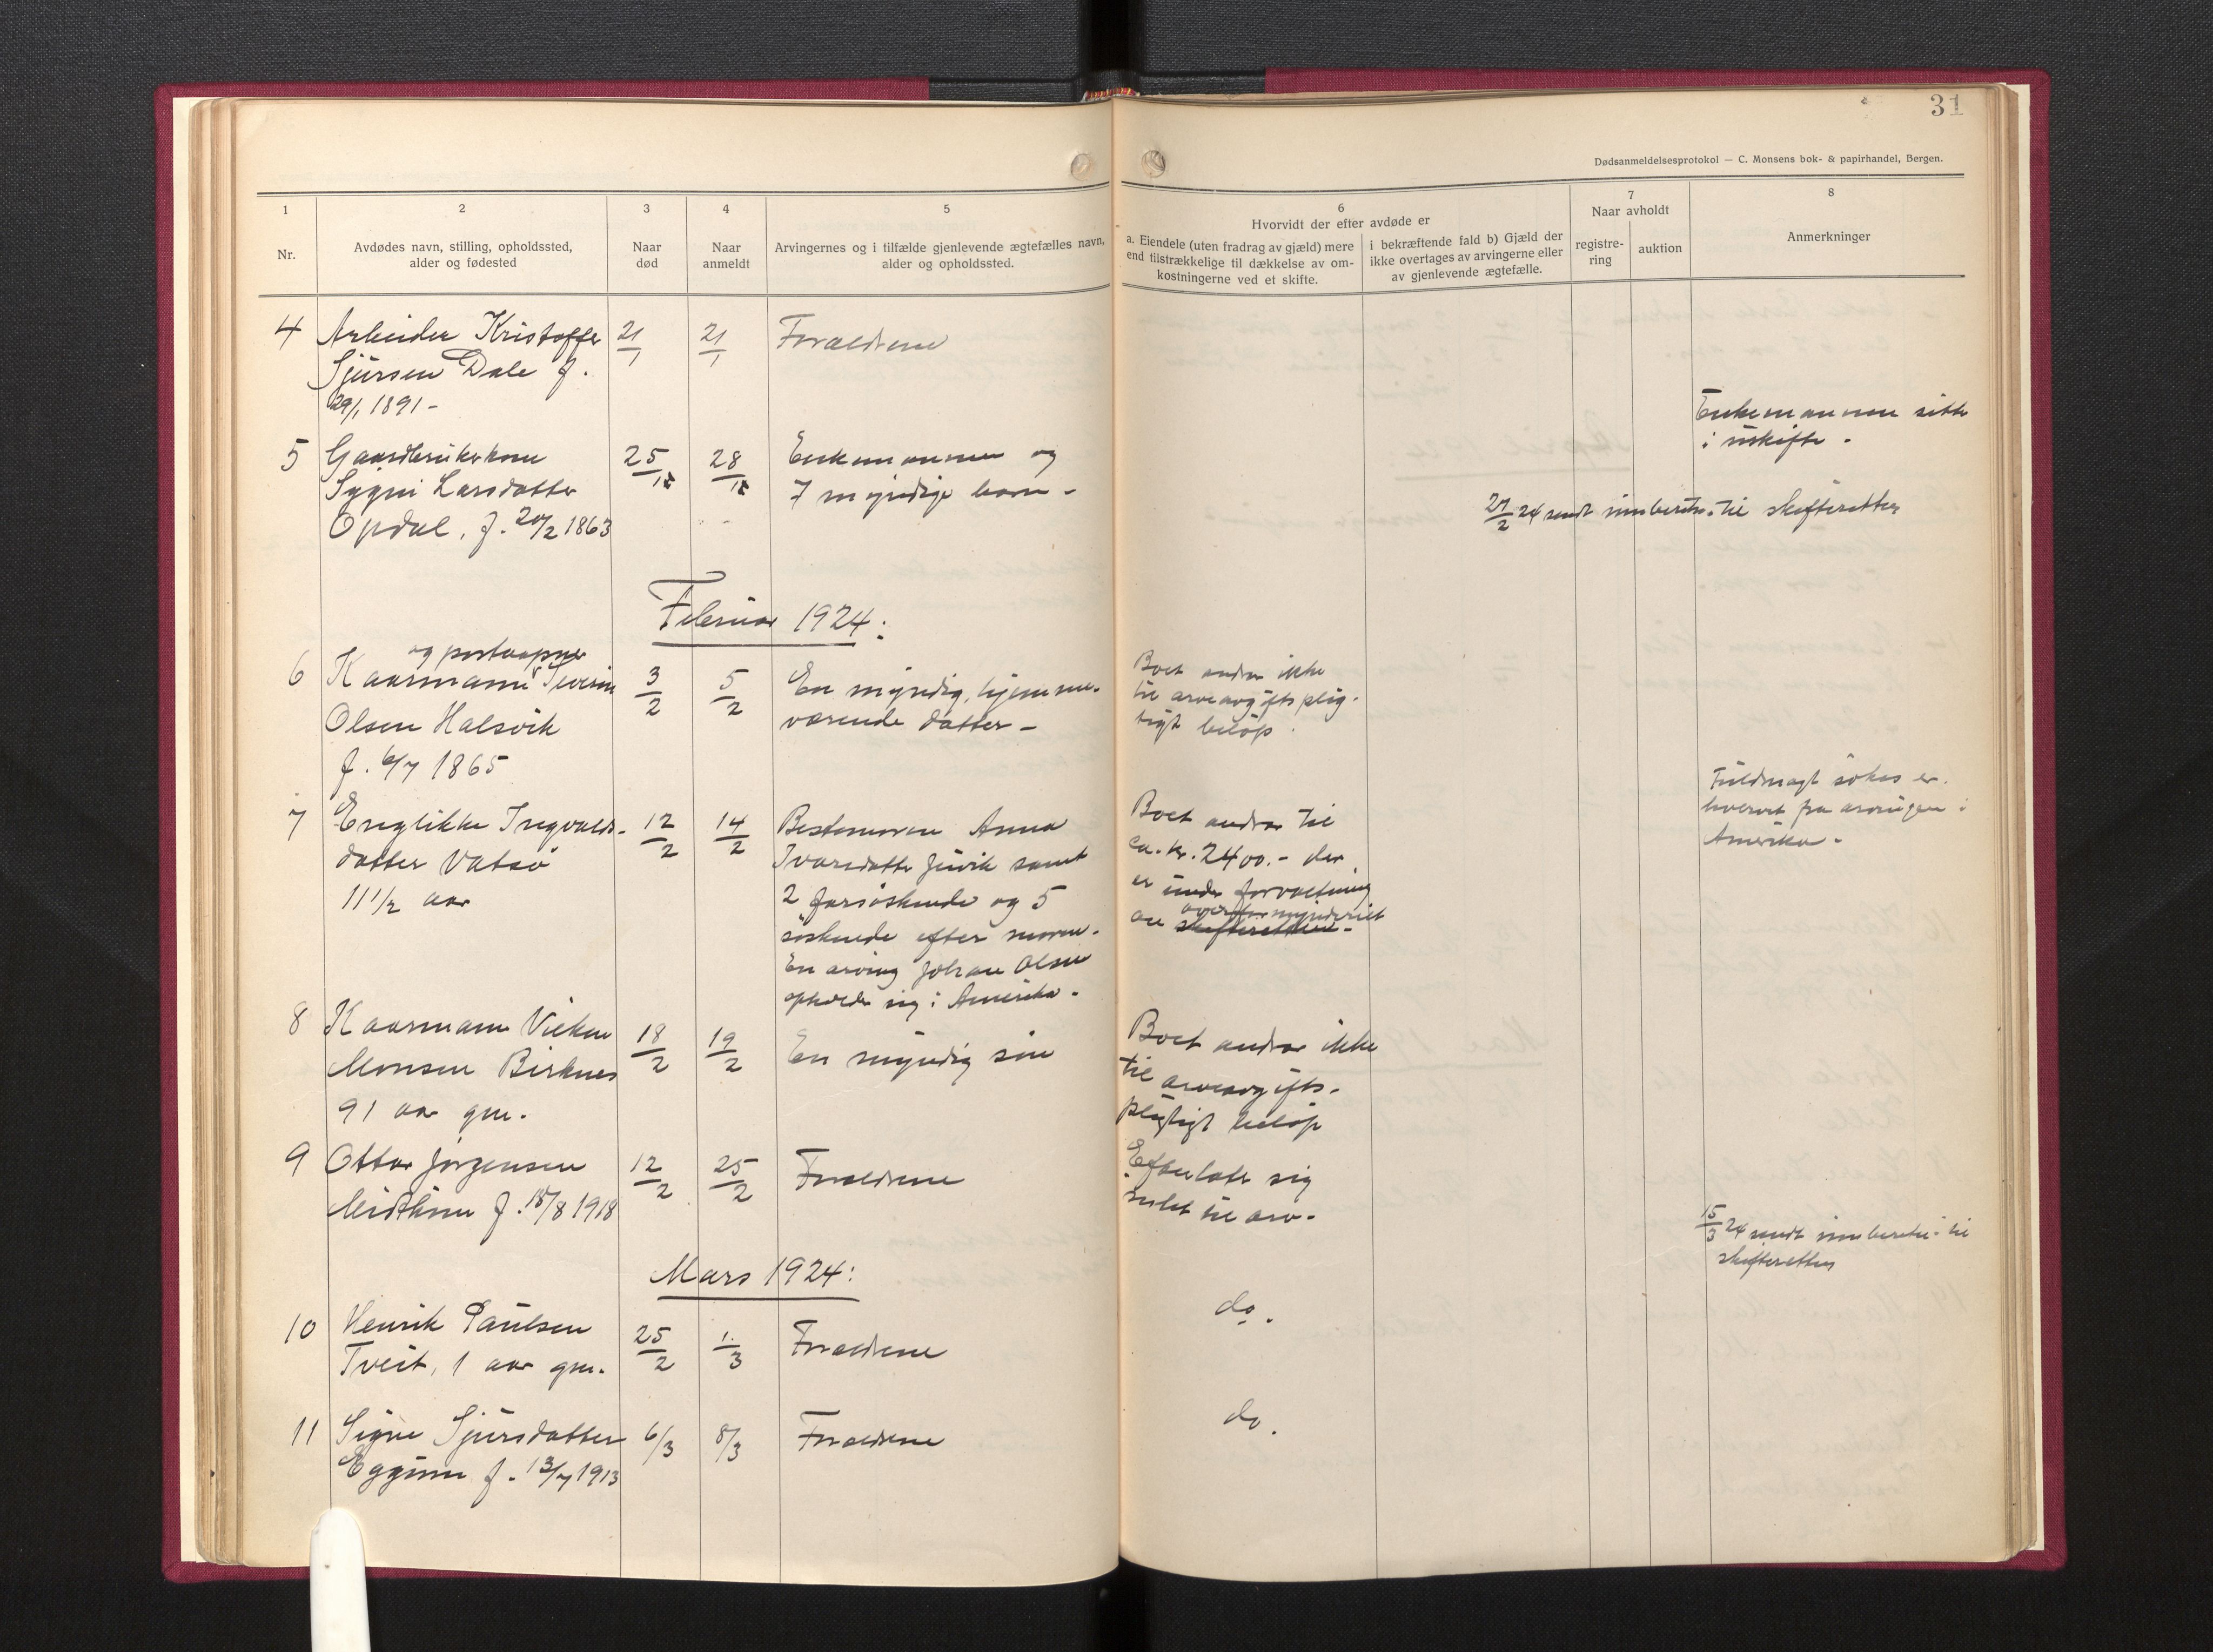 31
Dødsanmeldelsesprotokol — C. Monsens bok- & papirhandel, Bergen.
1
Nr.
2
Avdødes navn, stilling, opholdssted,
alder og fødested
3
Naar
død
4
Naar
anmeldt
5
Arvingernes og i tilfælde gjenlevende ægtefælles navn,
alder og opholdssted.
6
Hvorvidt der efter avdøde er
a. Eiendele (uten fradrag av gjæld) mere
end tilstrækkelige til dækkelse av om-
kostningerne ved et skifte.
i bekræftende fald b) Gjæld der
ikke overtages av arvingerne eller
av gjenlevende ægtefælle.
7
Naar avholdt
registre-
ring
auktion
8
Anmerkninger
4 Arbeider Kristoffer 21/1 21/1 Forældrene
Sjursen Dale f.
29/1 1891 -
5 Gaardbrukerkone 25/1 28/1 Enkemannen og
Sygni Larsdatter 7 myndige barn -
Opdal, f. 20/2 1863
Enkemannen sitter
i uskifte -
27/2 24 sendt innberetn. til skifteretten
Februar 1924:
og postaapner
6 Kaarmann Iversen 3/2 5/2 En myndig, hjemme-
Olsen Halsvik værende datter -
f. 6/7 1865
Boet andrar ikke
til arveavgiftsplig-
tigt beløp.
7 Englikke Ingvalds- 12/2 14/2 Bestemoren Anna
datter Vatsø Ivarsdatter Juvik samt
11 1/2 aar 2 farsøskende og 5
søskende efter moren.
En arving Johan Olsen
opholder sig i Amerika.
Boet andrar til
ca. kr. 2400.- der
er under forvaltning
overformynderiet
av skifteretten -
Fuldmagt søkes er-
hvervet fra arvingen i
Amerika -
8 Kaarmann 18/2 19/2 En myndig søn
Monsen Birknes
91 aar gm.
Boet andrar ikke
til arveavgifts-
pligtigt beløp
9 Ottar Jørgensen 12/2 25/2 Forældrene
Midthun f. 15/8 1918
Efterlater sig
intet til arv -
15/3 24 sendt innberetn. til
skifteretten
Mars 1924:
10 Henrik Paulsen 25/2 1/3 Forældrene do.
Tveit, 1 aar gm.
11 Signe Sjursdatter 6/3 8/3 Forældrene do.
Eggum f. 13/7 1913